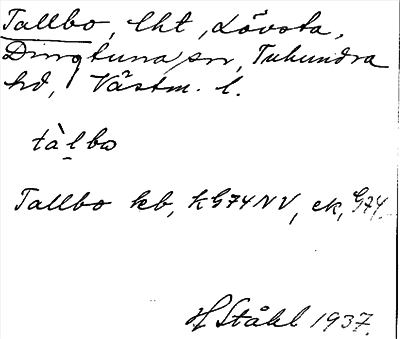 Tallbo, lht, Lövsta,
Dingtuna sn, Tuhundra
hd, Västm. l.
tàlbω
Tallbo kb, kG74NV, ek, G74.
H Ståhl 1937.